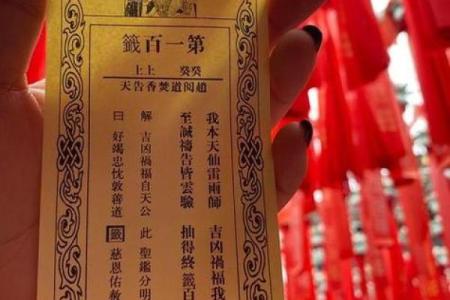 第一百籤
癸癸 上上
趙閱道焚香告天
我本天仙雷雨師 吉凶禍福我
至誠禱告皆靈驗 抽得終籤百
解 吉凶禍福自天公 此 聖鑑分明
曰 好竭忠忱敦善道 籤 慈恩佑